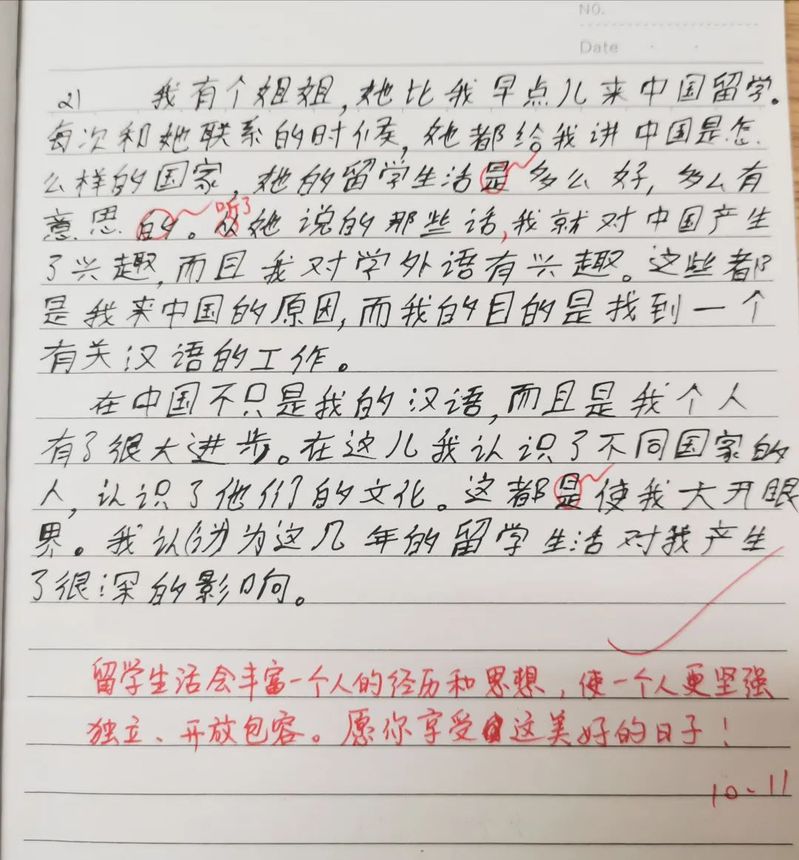 NO.
Date
21 我有个姐姐,她比我早点儿来中国留学。
每次和她联系的时候,她都给我讲中国是怎
么样的国家,她的留学生活是多么好,多么有
听了
意思的。从她说的那些话,我就对中国产生
了兴趣,而且我对学外语有兴趣。这些都
是我来中国的原因,而我的目的是找到一个
有关汉语的工作。
在中国不只是我的汉语,而且是我个人
有了很大进步。在这儿我认识了不同国家的
人,认识了他们的文化。这都是使我大开眼
界。我认为这几年的留学生活对我产生
了很深的影响。
留学生活会丰富一个人的经历和思想,使一个人更坚强
独立、开放包容。愿你享受这美好的日子!
10-11